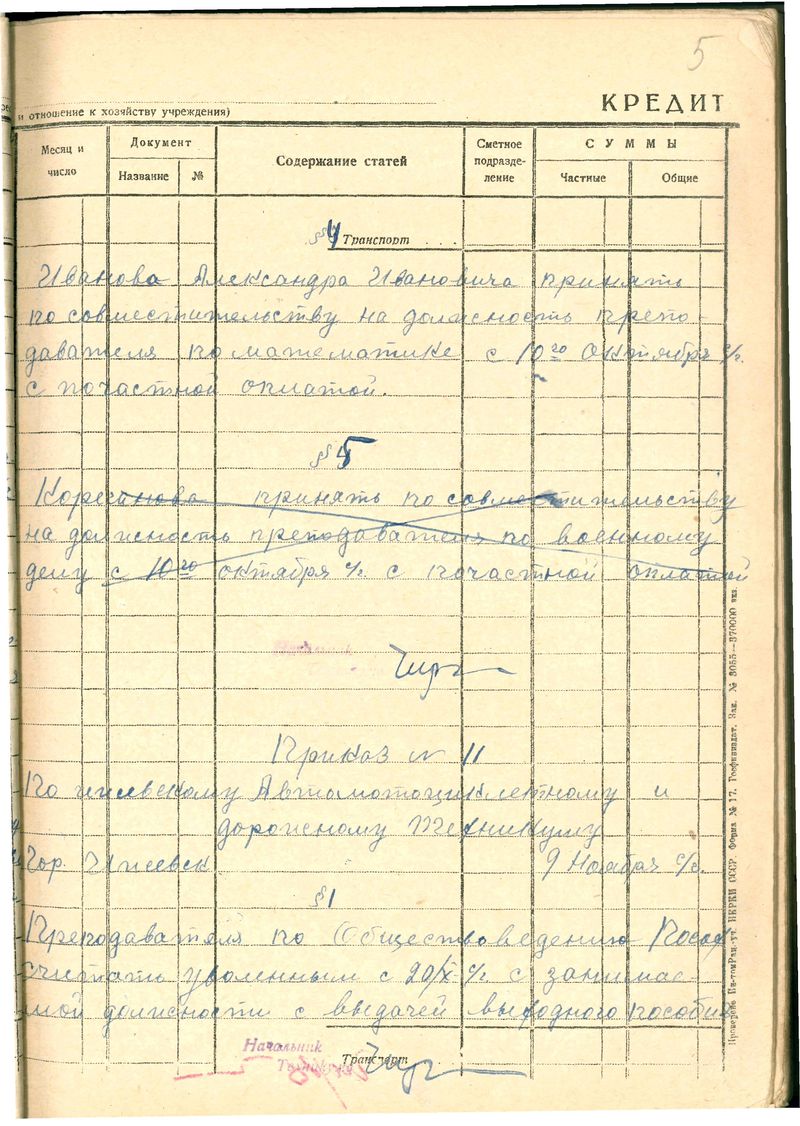 5
и отношение к хозяйству учреждения)
КРЕДИТ
Месяц и число
Документ
Название
№
Содержание статей
Сметное подразде-ление
СУММЫ
Частные
Общие
§4 Транспорт
Иванова Александра Ивановича принять
по совместительству на должность препо-
давателя по математике с 10го Октября с/г.
с почастной оплатой.
§5
принять по совместительству
на должность преподавателя по военному
делу с 10го октября с/г с почастной оплатой
Приказ № 11
По ижевскому Автомотоциклетному и
дорожному Техникуму
Гор. Ижевск 9 Ноября с/г.
§1
Преподавателя по Обществоведению
считать уволенным с 20/X с/г с занимае-
мой должности с выдачей выходного пособия
Начальник
Транспорт
Техникума
Проверено Ин-том Рац. уч. НКРКИ СССР. Форма № 17. Госфиниздат. Зак. № 3055—370000 экз.